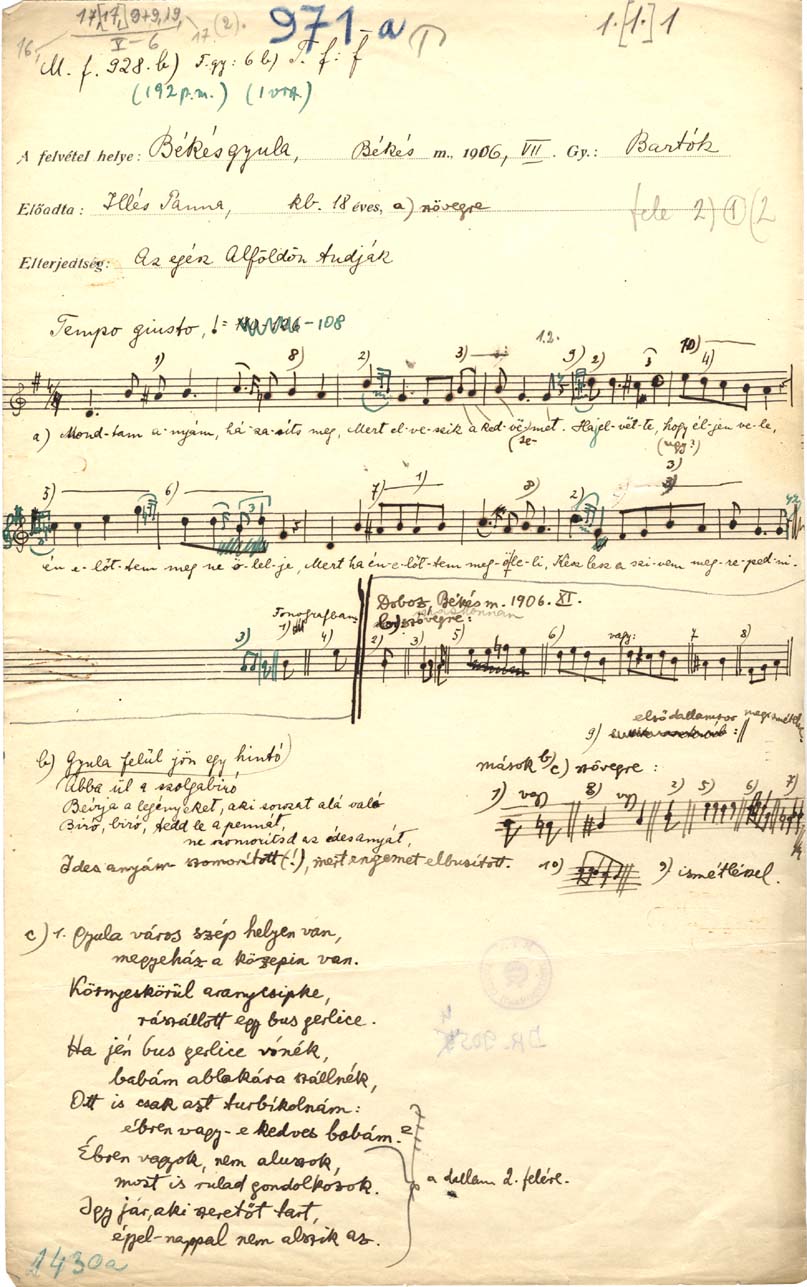 17[17,] 9+9, 19,
V–6
16,
17 (2).
971 a
I
1.[1.] 1
M. f. 928. b) F. gy: 6 b) T. f: f
(192 p.m.) (1 vrzt.)
A felvétel helye: Békésgyula, Békés m., 1906, VII. Gy.: Bartók
Előadta: Illés Panna, kb. 18 éves, a) szövegre
fele 2) 1 (2
Elterjedtség: Az egész Alföldön tudják
Tempo giusto, –108
1) 8) 2) 3) 1.2. 9) 2) 3 10) 4)
a) Mond-tam a-nyám, há-za-síts meg, Mert el-ve-szik a ked-ve-met. Haj el-vet-te, hogy él-jen ve-le,
(sze- (úgy?)
5) 6) 7) 1) 8) 2) 3)
én e-lőt-tem meg ne ö-lel-je, Mert ha én-e-lőt-tem meg-öle-li, Kész lesz a szi-vem meg-re-ped-ni.
Doboz, Békés m. 1906. XI.
Fonografban
szövegre:
3) 1) 4) 2) 3) 5) 6) vagy: 7 8)
9) első dallamsor
b) Gyula felül jön egy hintó
Abba ül a szolgabiró
Beirja a legényeket, aki sorzat alá való
Biró, biró, tedd le a pennát,
ne szomorítsd az édesanyát,
Édes anyám szomorított (!), mert engemet elbusított.
mások b) c) szövegre:
1) vagy 8) vagy 2) 5) 6) 7)
10) 9) ismétléssel.
c) 1. Gyula város szép helyen van,
megyeház a közepin van.
Környeskörül aranycsipke,
rászállott egy bus gerlice.
Ha jén bus gerlice vónék,
babám ablakára szállnék,
Ott is csak azt turbikolnám:
ébren vagy-e kedves babám?
Ébren vagyok, nem aluszok,
most is rulad gondolkozok.
Igy jár, aki szeretőt tart,
éjjel-nappal nem alszik az.
a dallam 2. felére.
2430a